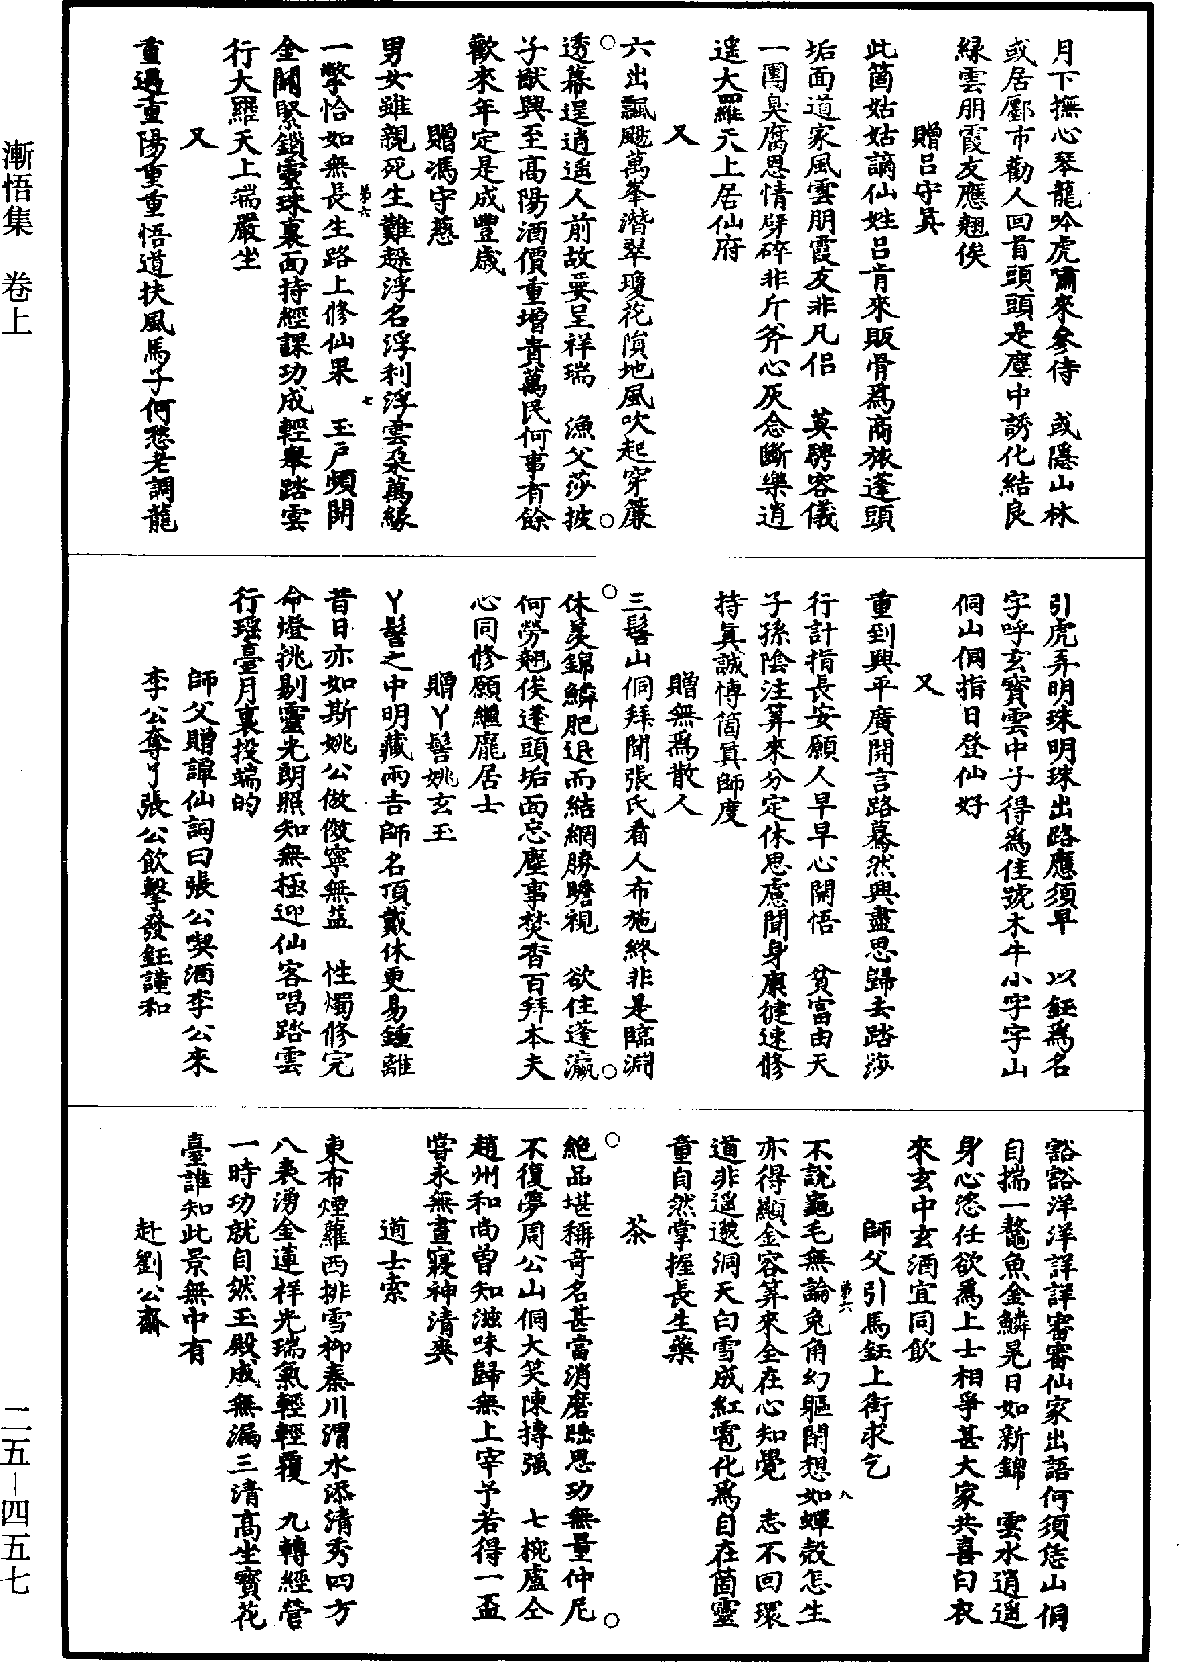 月下撫心琴龍吟虎嘯來參侍　或隱山林
或居鄽市勸人回首頭頭是塵中誘化結良
緣雲朋霞友應翹俟
贈呂守真
此箇姑姑謫仙姓呂肯來販骨爲商旅蓬頭
垢面道家風雲朋霞友非凡侶　莫騁容儀
一團臭腐恩情劈碎非斤斧心灰念斷樂逍
遙大羅天上居仙府
又
六出飄颻萬峯潛翠瓊花隕地風吹起穿簾
透幕逞逍遥人前故要呈祥瑞　漁父莎披
子猷興至高陽酒價重增貴萬民何事有餘
歡來年定是成豐歲
贈馮守慈
男女雖親死生難趓浮名浮利浮雲朶萬緣
一擎恰如無長生路上修仙果　玉戶頻開
金關緊鎖靈珠裏面持經課功成輕舉踏雲
行大羅天上端嚴坐
又
重遇重陽重重悟道扶風馬子何愁老調龍
引虎弄明珠明珠出路應須早　以鈺爲名
字呼玄寶雲中子得爲佳號木牛小字字山
侗山侗指日登仙好
又
重到興平廣開言路驀然興盡思歸去踏莎
行計指長安願人早早心開悟　貧富由天
子孫陰注算來分定休思慮聞身康健速修
持真誠愽箇真師度
贈無爲散人
三髻山侗拜聞張氏看人布施終非是臨淵
休羨錦鱗肥退而結網勝瞻視　欲住蓬瀛
何勞翹俟蓬頭垢面忘塵事焚香百拜本夫
心同修願繼龐居士
贈丫髻姚玄玉
丫髻之中明藏兩吉師名頂戴休更易鍾離
昔日亦如斯姚公做傚寧無益　性燭修完
命燈挑剔靈光朗照知無極迎仙客唱踏雲
行瑶臺月裏投端的
師父贈譚仙詞曰張公喫酒李公來
李公奪了張公飲擊發鈺謹和
豁豁洋洋詳詳審審仙家出語何須恁山侗
自揣一鼇魚金鱗晃日如新錦　雲水逍遥
身心恣任欲爲上士相爭甚大家共喜白衣
來玄中玄酒宜同飲
師父引馬鈺上街求乞
不說龜毛無論兔角幻軀閑想如蟬殼怎生
亦得顯金容算來全在心知覺　志不回環
道非遥邈洞天白雪成紅雹化爲自在箇靈
童自然掌握長生藥
茶
絶品堪稱奇名甚當消磨睡思功無量仲尼
不復夢周公山侗大笑陳摶强　七椀盧仝
趙州和尚曾知滋味歸無上宰予若得一盃
嘗永無晝寢神清爽
道士索
東布煙蘿西排雪柳秦川渭水添清秀四方
八表湧金蓮祥光瑞氣輕輕覆　九轉經營
一時功就自然玉殿成無漏三清高坐寶花
臺誰知此景無中有
赴劉公齋
漸悟集　卷上
二五—四五七